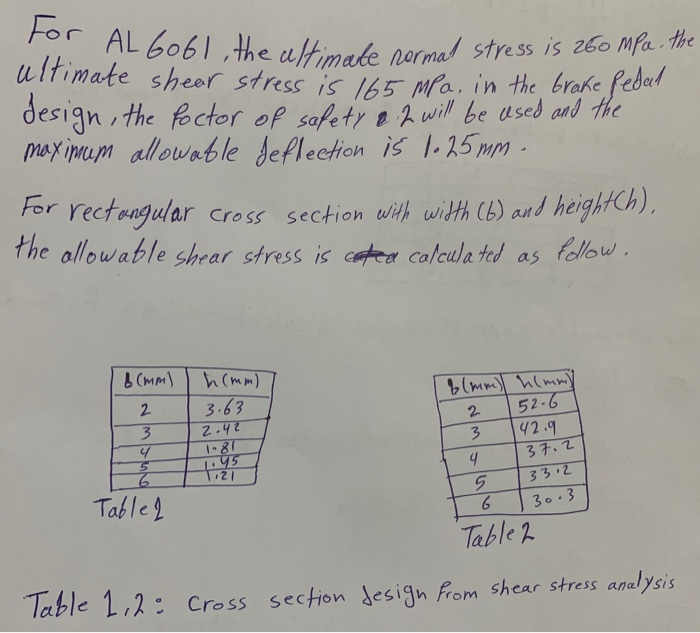 For AL 6061, the ultimate normal stress is 260 MPa. the
ultimate shear stress is 165 MPa. in the brake Pedal
design, the factor of safety 2 will be used and the
maximum allowable deflection is 1.25mm.
For rectangular cross section with width (b) and height(h),
the allowable shear stress is calculated as follow.
b(mm) h(mm)
2 3.63
3 2.42
4 1.81
5 1.45
6 1.21
Table 1
b(mm) h(mm)
2 52.6
3 42.9
4 37.2
5 33.2
6 30.3
Table 2
Table 1,2: Cross section design from shear stress analysis